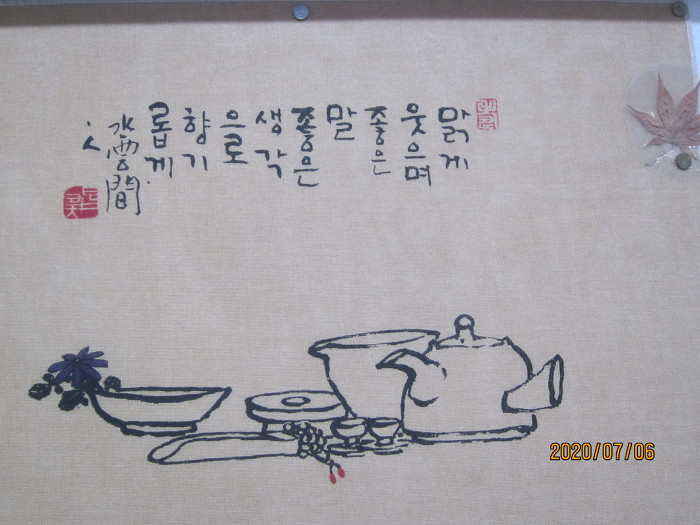 맑게
웃으며
좋은
말
좋은
생각
으로
향기
롭게
水雲間
人
2020/07/06